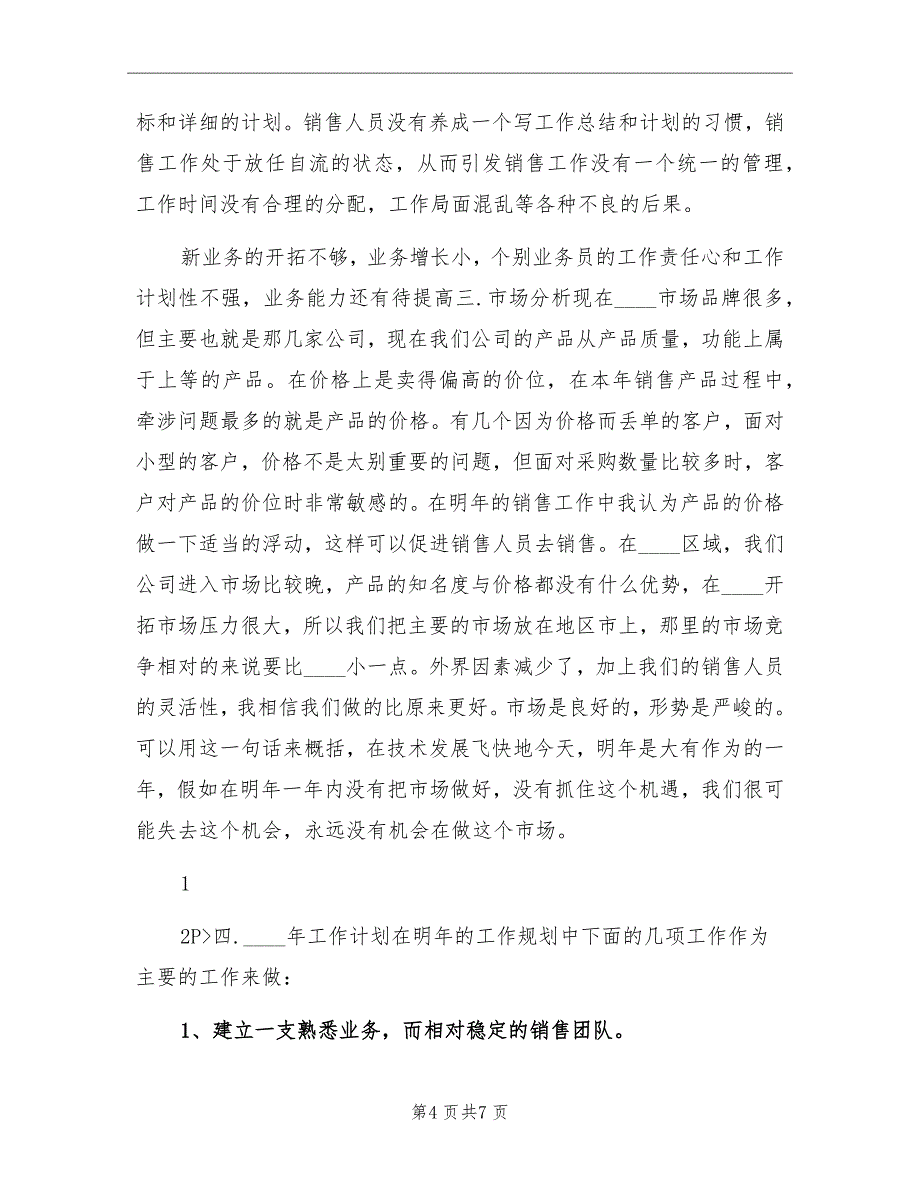 标和详细的计划。销售人员没有养成一个写工作总结和计划的习惯，销
售工作处于放任自流的状态，从而引发销售工作没有一个统一的管理，
工作时间没有合理的分配，工作局面混乱等各种不良的后果。
新业务的开拓不够，业务增长小，个别业务员的工作责任心和工作
计划性不强，业务能力还有待提高三.市场分析现在____市场品牌很多，
但主要也就是那几家公司，现在我们公司的产品从产品质量，功能上属
于上等的产品。在价格上是卖得偏高的价位，在本年销售产品过程中，
牵涉问题最多的就是产品的价格。有几个因为价格而丢单的客户，面对
小型的客户，价格不是太别重要的问题，但面对采购数量比较多时，客
户对产品的价位时非常敏感的。在明年的销售工作中我认为产品的价格
做一下适当的浮动，这样可以促进销售人员去销售。在____区域，我们
公司进入市场比较晚，产品的知名度与价格都没有什么优势，在____开
拓市场压力很大，所以我们把主要的市场放在地区市上，那里的市场竞
争相对的来说要比____小一点。外界因素减少了，加上我们的销售人员
的灵活性，我相信我们做的比原来更好。市场是良好的，形势是严峻的。
可以用这一句话来概括，在技术发展飞快地今天，明年是大有作为的一
年，假如在明年一年内没有把市场做好，没有抓住这个机遇，我们很可
能失去这个机会，永远没有机会在做这个市场。
1
2P>四.____年工作计划在明年的工作规划中下面的几项工作作为
主要的工作来做：
1、建立一支熟悉业务，而相对稳定的销售团队。
第4 页共7 页